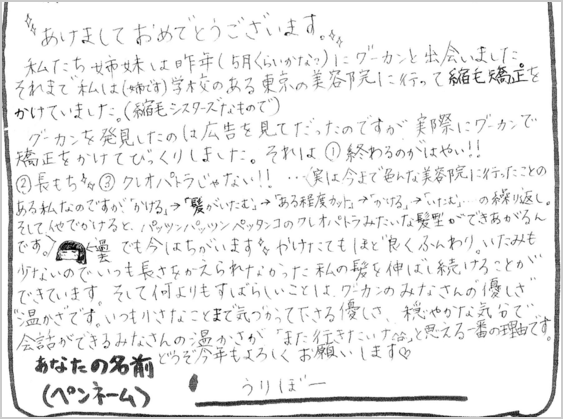 あけましておめでとうございます。
私たち姉妹は昨年(5月くらいかな?)にグーカンと出会いました。
それまで私は(姉です)学校のある東京の美容院に行って縮毛矯正を
かけていました。(縮毛シスターズなもので)
グーカンを発見したのは広告を見てだったのですが実際にグーカンで
矯正をかけてびっくりしました。それは①終わるのがはやい!!
②長もち ③クレオパトラじゃない!! …実は今まで色んな美容院に行ったことの
ある私なのですが「かける」→「髪がいたむ」→「ある程度カット」→「かける」→「いたむ」…の繰り返し。
そして他でかけると、パッツンパッツンペッタンコのクレオパトラみたいな髪型ができあがるん
です。 ←曇 でも今はちがいます かけたてもほど良くふんわり。いたみも
少ないのでいつも長さをかえられなかった私の髪を伸ばし続けることが
できています。そして何よりもすばらしいことは、グーカンのみなさんの優しさ
温かさです。いつも小さなことまで気づかって下さる優しさ、穏やかな気分で
会話ができるみなさんの温かさが「また行きたいナ」と思える一番の理由です。
どうぞ今年もよろしくお願いします♡
あなたの名前
(ペンネーム)
うりぼー